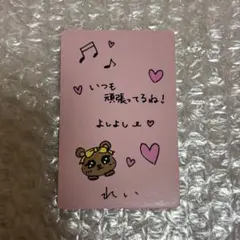 いつも
頑張ってるね!
よしよし♡
れい